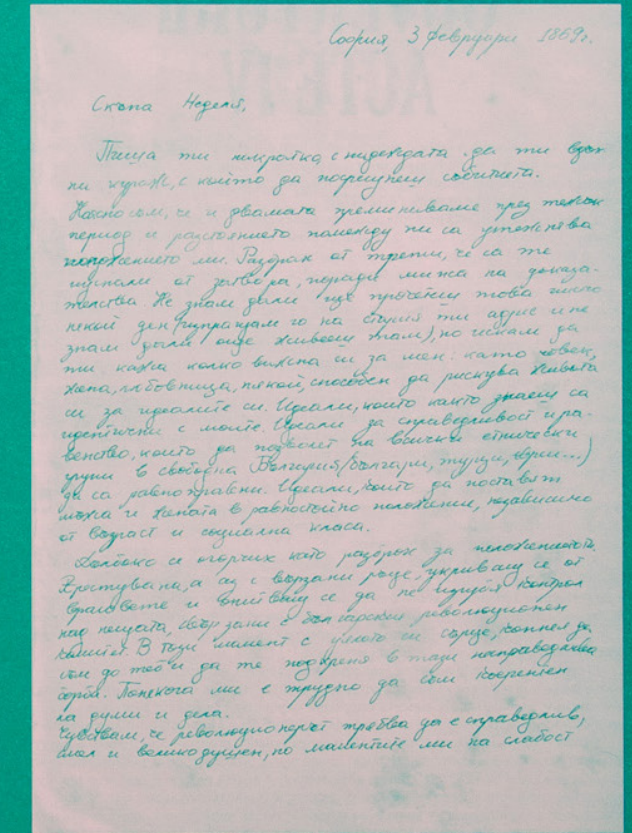 София, 3 февруари 1869г.
Скъпа Неделя,
Пиша ти накратко, с надеждата да ти вдъх-
на кураж, с който да посрещнеш събитията.
Наясно съм, че и двамата преминаваме през тежък
период и разстоянието помежду ни са утежнява
положението ми. Разбрах от трети, че са те
пуснали от затвора, поради липса на доказа-
телства. Не знам дали ще прочетеш това писмо
някой ден (изпращам го на стария ти адрес и не
знам дали още живееш там), но искам да
ти кажа колко важна си за мен: като човек,
жена, любовница, някой, способен да рискува живота
си за идеалите си. Идеали, които както знаеш са
идентични с моите. Идеали за справедливост и ра-
венство, които да позволят на всички етнически
групи в свободна България (българи, турци, евреи...)
да са равноправни. Идеали, които да поставят
мъжа и жената в равностойно положение, независимо
от възраст и социална класа.
Дълбоко се огорчих като разбрах за положението ти.
Арестувана, а аз с вързани ръце, укриващ се от
враговете и опитващ се да не изгубя контрол
над нещата, свързани с българския революционен
комитет. В този момент с цялото си сърце, копнея да
съм до теб и да те подкрепя в тази несправедлива
борба. Понякога ми е трудно да съм кохерентен
на думи и дела.
Чувствам, че революционерът трябва да е справедлив,
смел и великодушен, но моментите ми на слабост